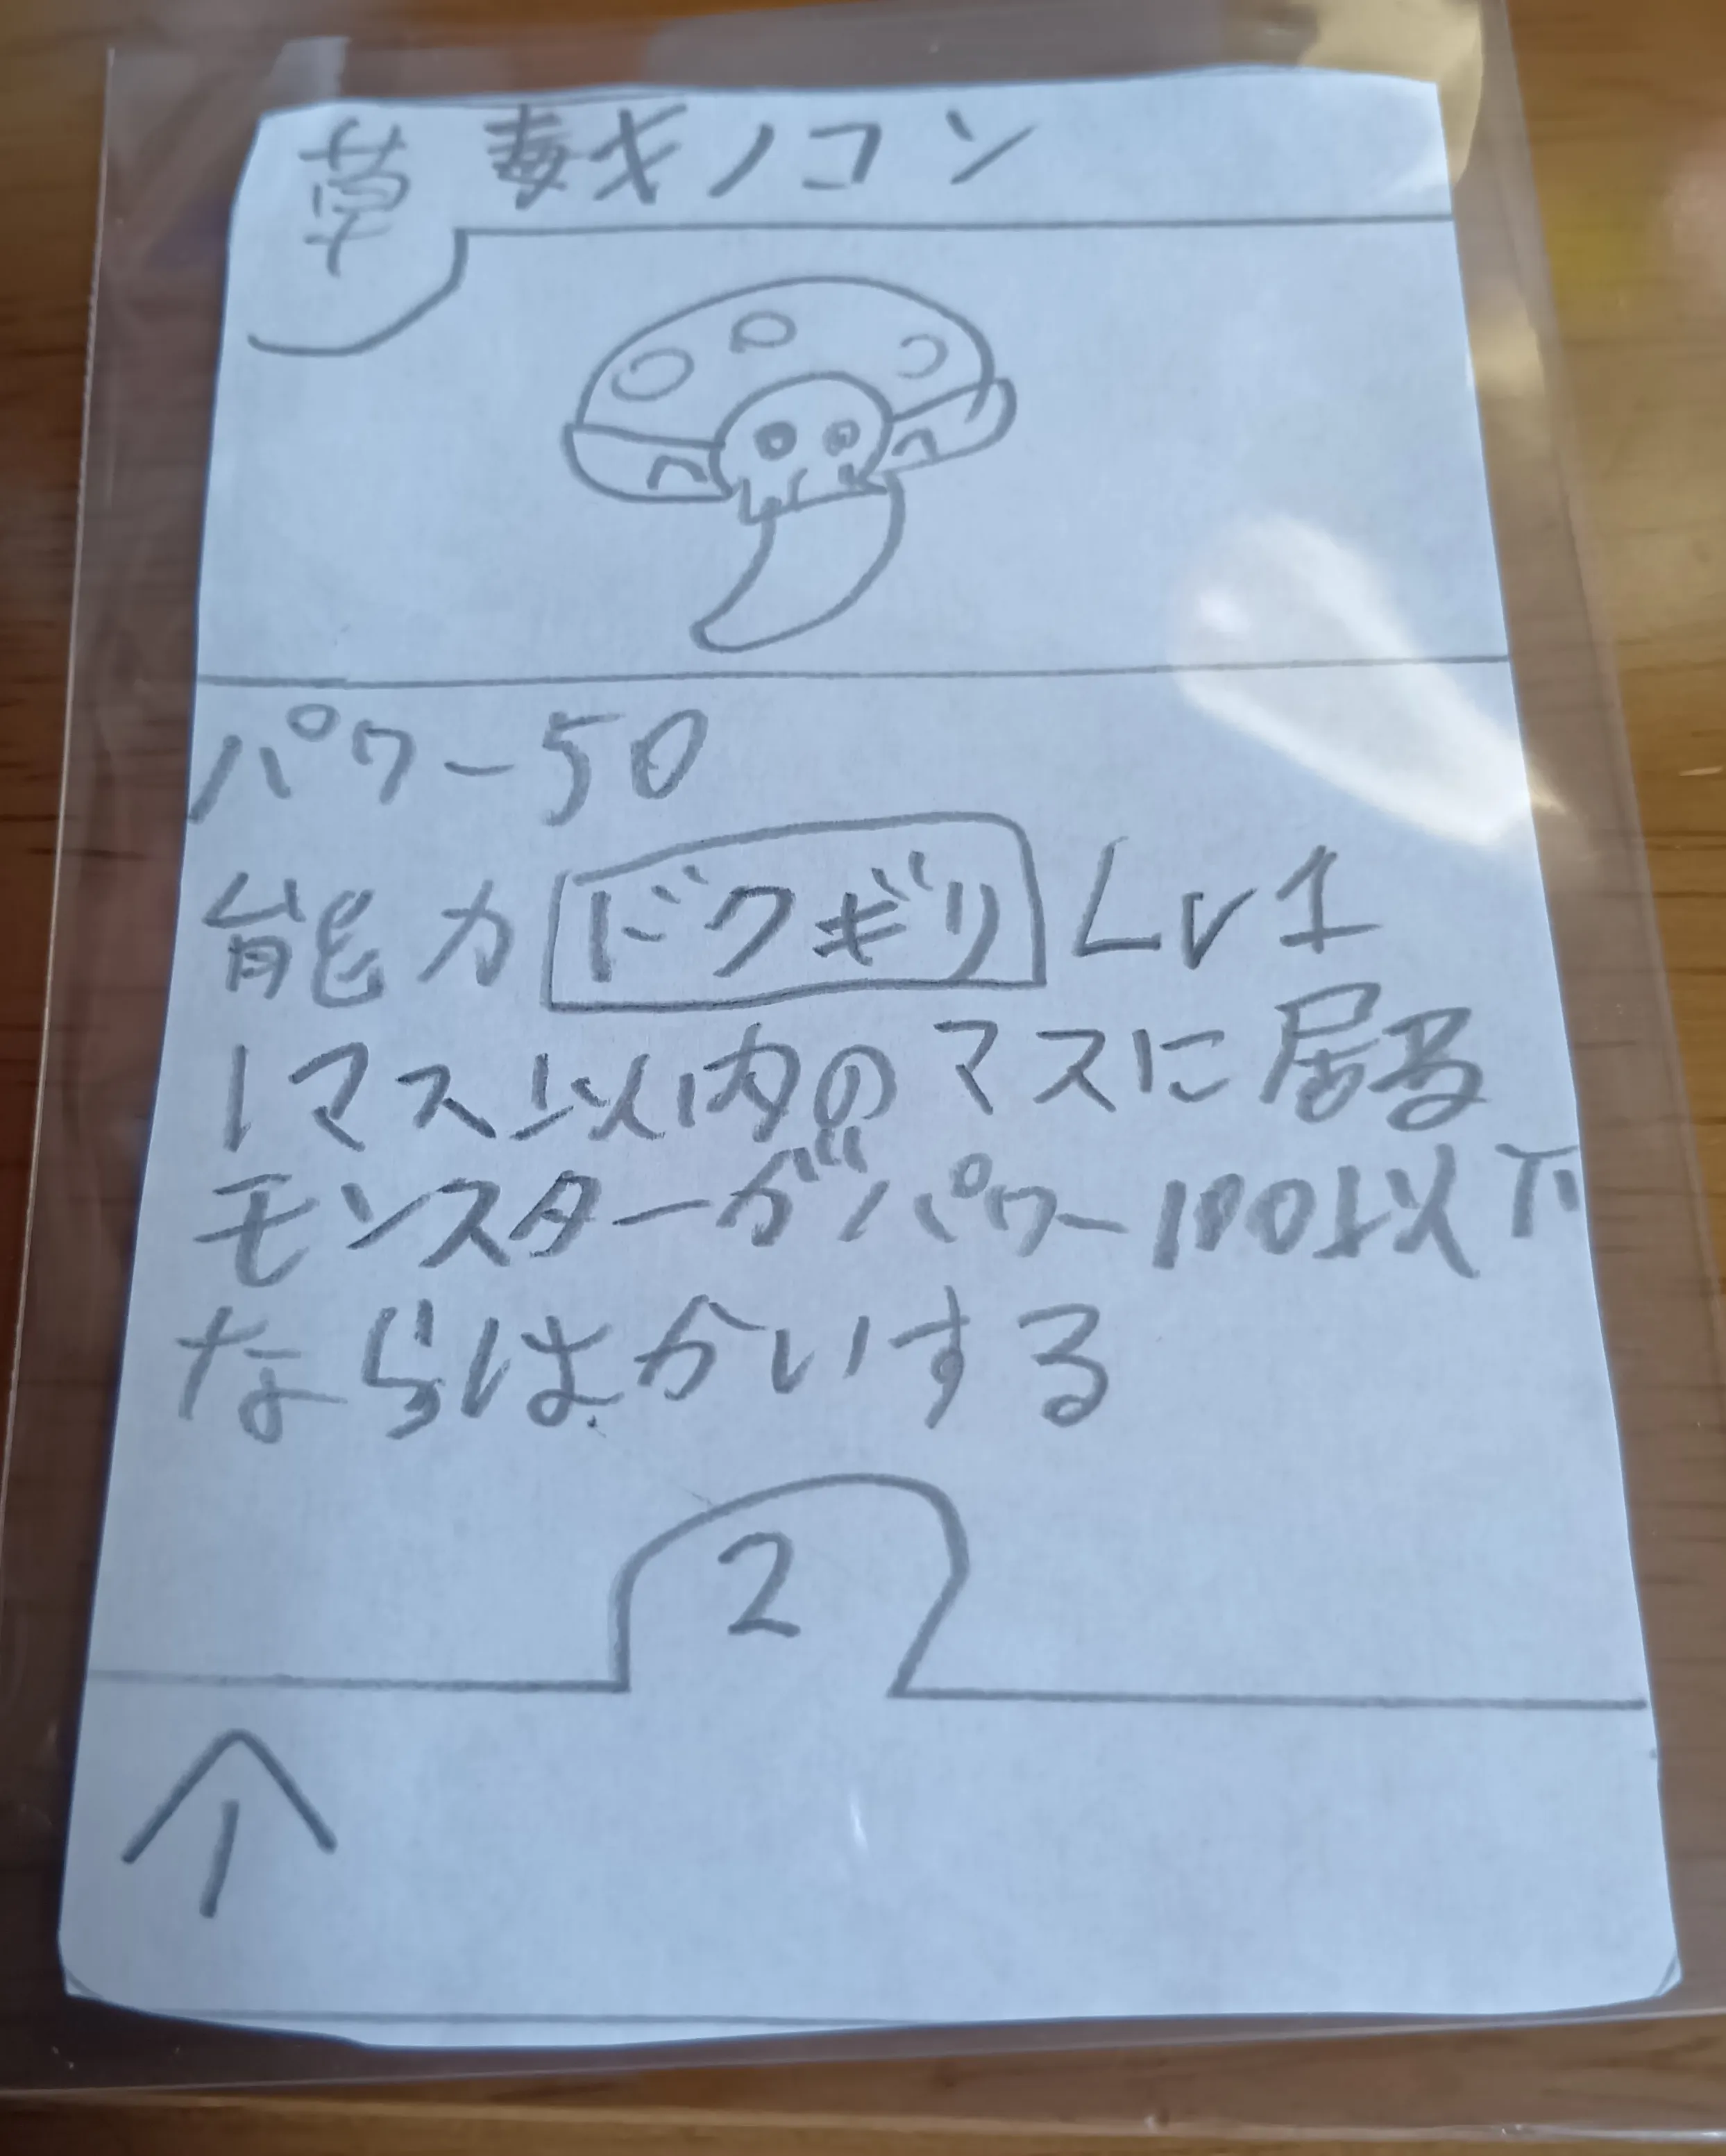 草 毒キノコン
パワー50
能力 ドクギリ Lv1
1マス以内のマスに居る
モンスターがパワー100以下
ならはかいする
2
↑